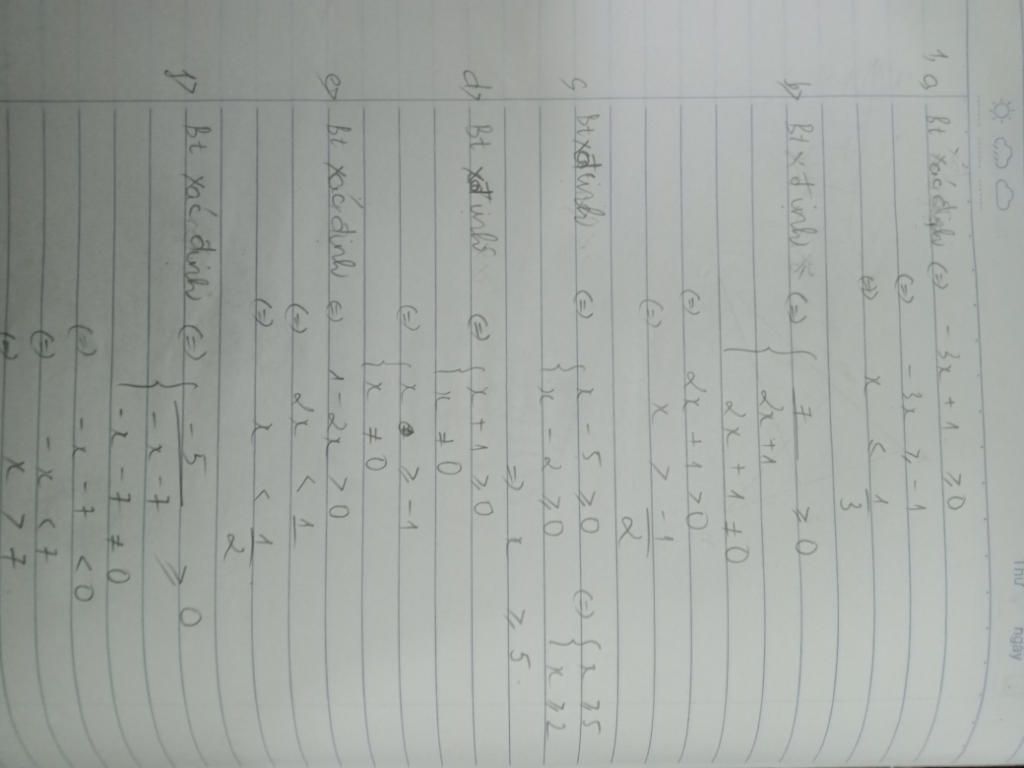 Thứ ngày
1, a, Bt xác định (=) -3x + 1 ≥ 0
(=) -3x ≥ -1
(=) x ≤ 1/3
b, Bt xđịnh (=) { 7/(2x+1) ≥ 0
{ 2x + 1 ≠ 0
(=) 2x + 1 > 0
(=) x > -1/2
c, Bt xđịnh (=) { x - 5 ≥ 0 (=) { x ≥ 5
{ x - 2 ≥ 0 { x ≥ 2
=) x ≥ 5
d, Bt xđịnh (=) { x + 1 ≥ 0
{ x ≠ 0
(=) { x ≥ -1
{ x ≠ 0
e, Bt xác định (=) 1 - 2x > 0
(=) 2x < 1
(=) x < 1/2
Bt xác định (=) { -5/(-x-7) ≥ 0
{ -x - 7 ≠ 0
(=) -x - 7 < 0
(=) -x < 7
(=) x > 7